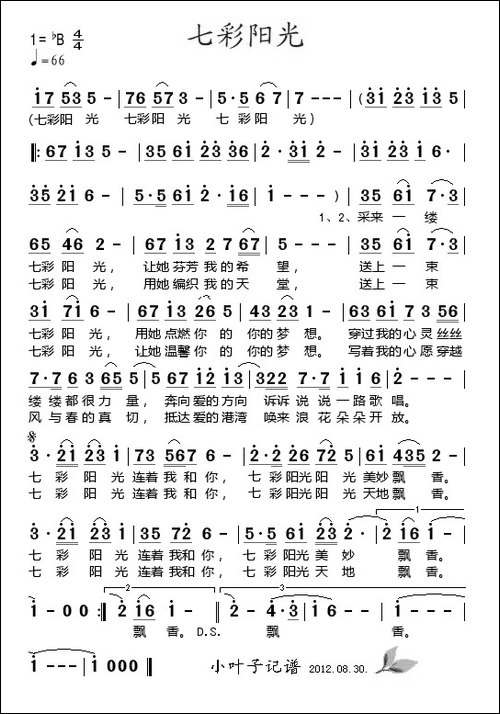 七彩阳光
1=♭B 4/4
♩=66
i7 53 5 - | 76 57 3 - | 5·5 6 7 | 7 - - - | (31 23 13 5 |
(七彩阳 光 七彩阳 光 七 彩 阳 光)
‖: 67 i3 5 - | 35 61 23 36 | 2·31 2 - | 35 61 23 i6· |
35 21 6 - | 5·5 61 2·16 | i - - - ) | 35 61 7·3 |
1、2、采来 一 缕
65 46 2 - | 67 i3 2 7 67 | 5 - - - | 35 61 7·3 |
七彩 阳 光, 让她 芬芳 我 的 希 望, 送上 一 束
七彩 阳 光, 用她 编织 我 的 天 堂, 送上 一 束
31 71 6 - | 67 i3 26· | 43 23 1 - | 63 61 7 3 56 |
七彩 阳 光, 用她 点燃 你 的 你的 梦 想。 穿过 我的 心 灵 丝丝
七彩 阳 光, 让她 温馨 你 的 你的 梦 想。 写着 我的 心 愿 穿越
7·7 6 3 65 5 | 5 67 i2 i3 | 322 7 7·7 | i i 6 2 - |
缕 缕 都 很 力 量, 奔向 爱的 方向 诉诉 说 说 一 路 歌 唱。
风 与 春 的 真 切, 抵达 爱的 港湾 唤来 浪 花 朵 朵 开 放。
3·21 23 i | 73 567 6 - | 2·2 26 72 5 | 6i 435 2 - |
七 彩 阳 光 连着 我 和 你, 七 彩 阳光 阳 光 美妙 飘 香。
七 彩 阳 光 连着 我 和 你, 七 彩 阳光 阳 光 天地 飘 香。
3·21 23 i | 35 72 6 - | 5·5 61 23 2· | 2 i6 i - |
七 彩 阳 光 连着 我和 你, 七 彩 阳光 美 妙 飘 香。
七 彩 阳 光 连着 我和 你, 七 彩 阳光 天 地 飘 香。
i - 0 0 :‖ 2 i6 i - | 2 - 2·3 | i6 i - - |
飘 香。 D.S. 飘 香。
i - - - | i 0 0 0 ‖ 小叶子记谱 2012.08.30.